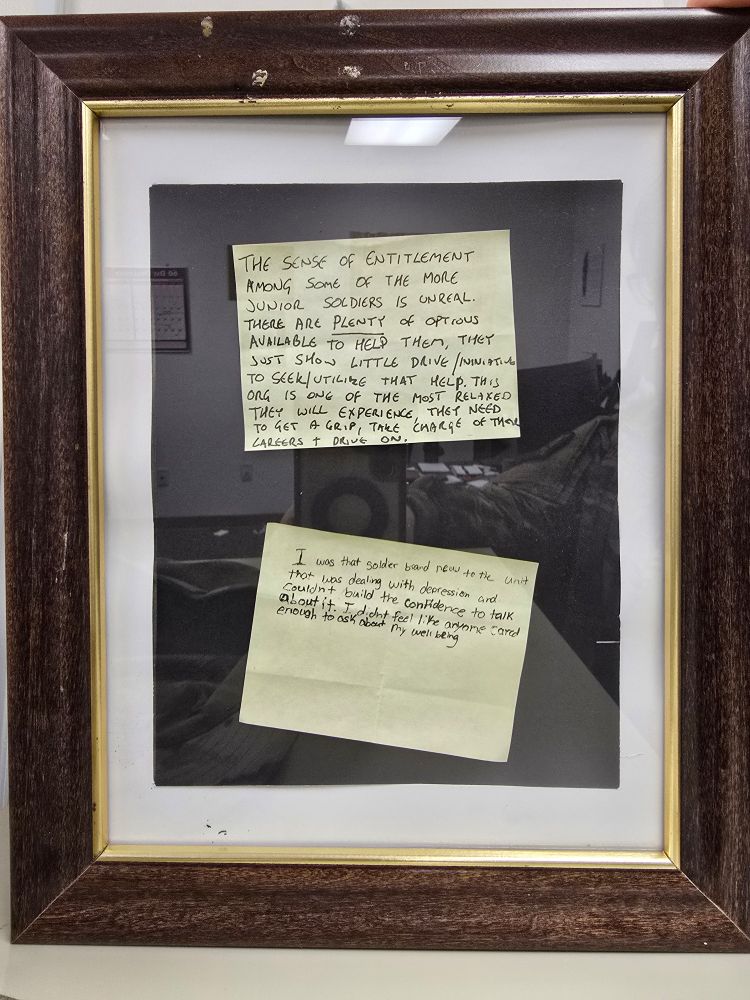 THE SENSE OF ENTITLEMENT
AMONG SOME OF THE MORE
JUNIOR SOLDIERS IS UNREAL.
THERE ARE PLENTY OF OPTIONS
AVAILABLE TO HELP THEM, THEY
JUST SHOW LITTLE DRIVE/ININIATIVE
TO SEEK/UTILIZE THAT HELP. THIS
ORG IS ONE OF THE MOST RELAXED
THEY WILL EXPERIENCE, THEY NEED
TO GET A GRIP, TAKE CHARGE OF THEIR
CAREERS + DRIVE ON.
I was that solder brand new to the unit
that was dealing with depression and
couldn't build the confidence to talk
about it. I didnt feel like anyone cared
enough to ask about my well being